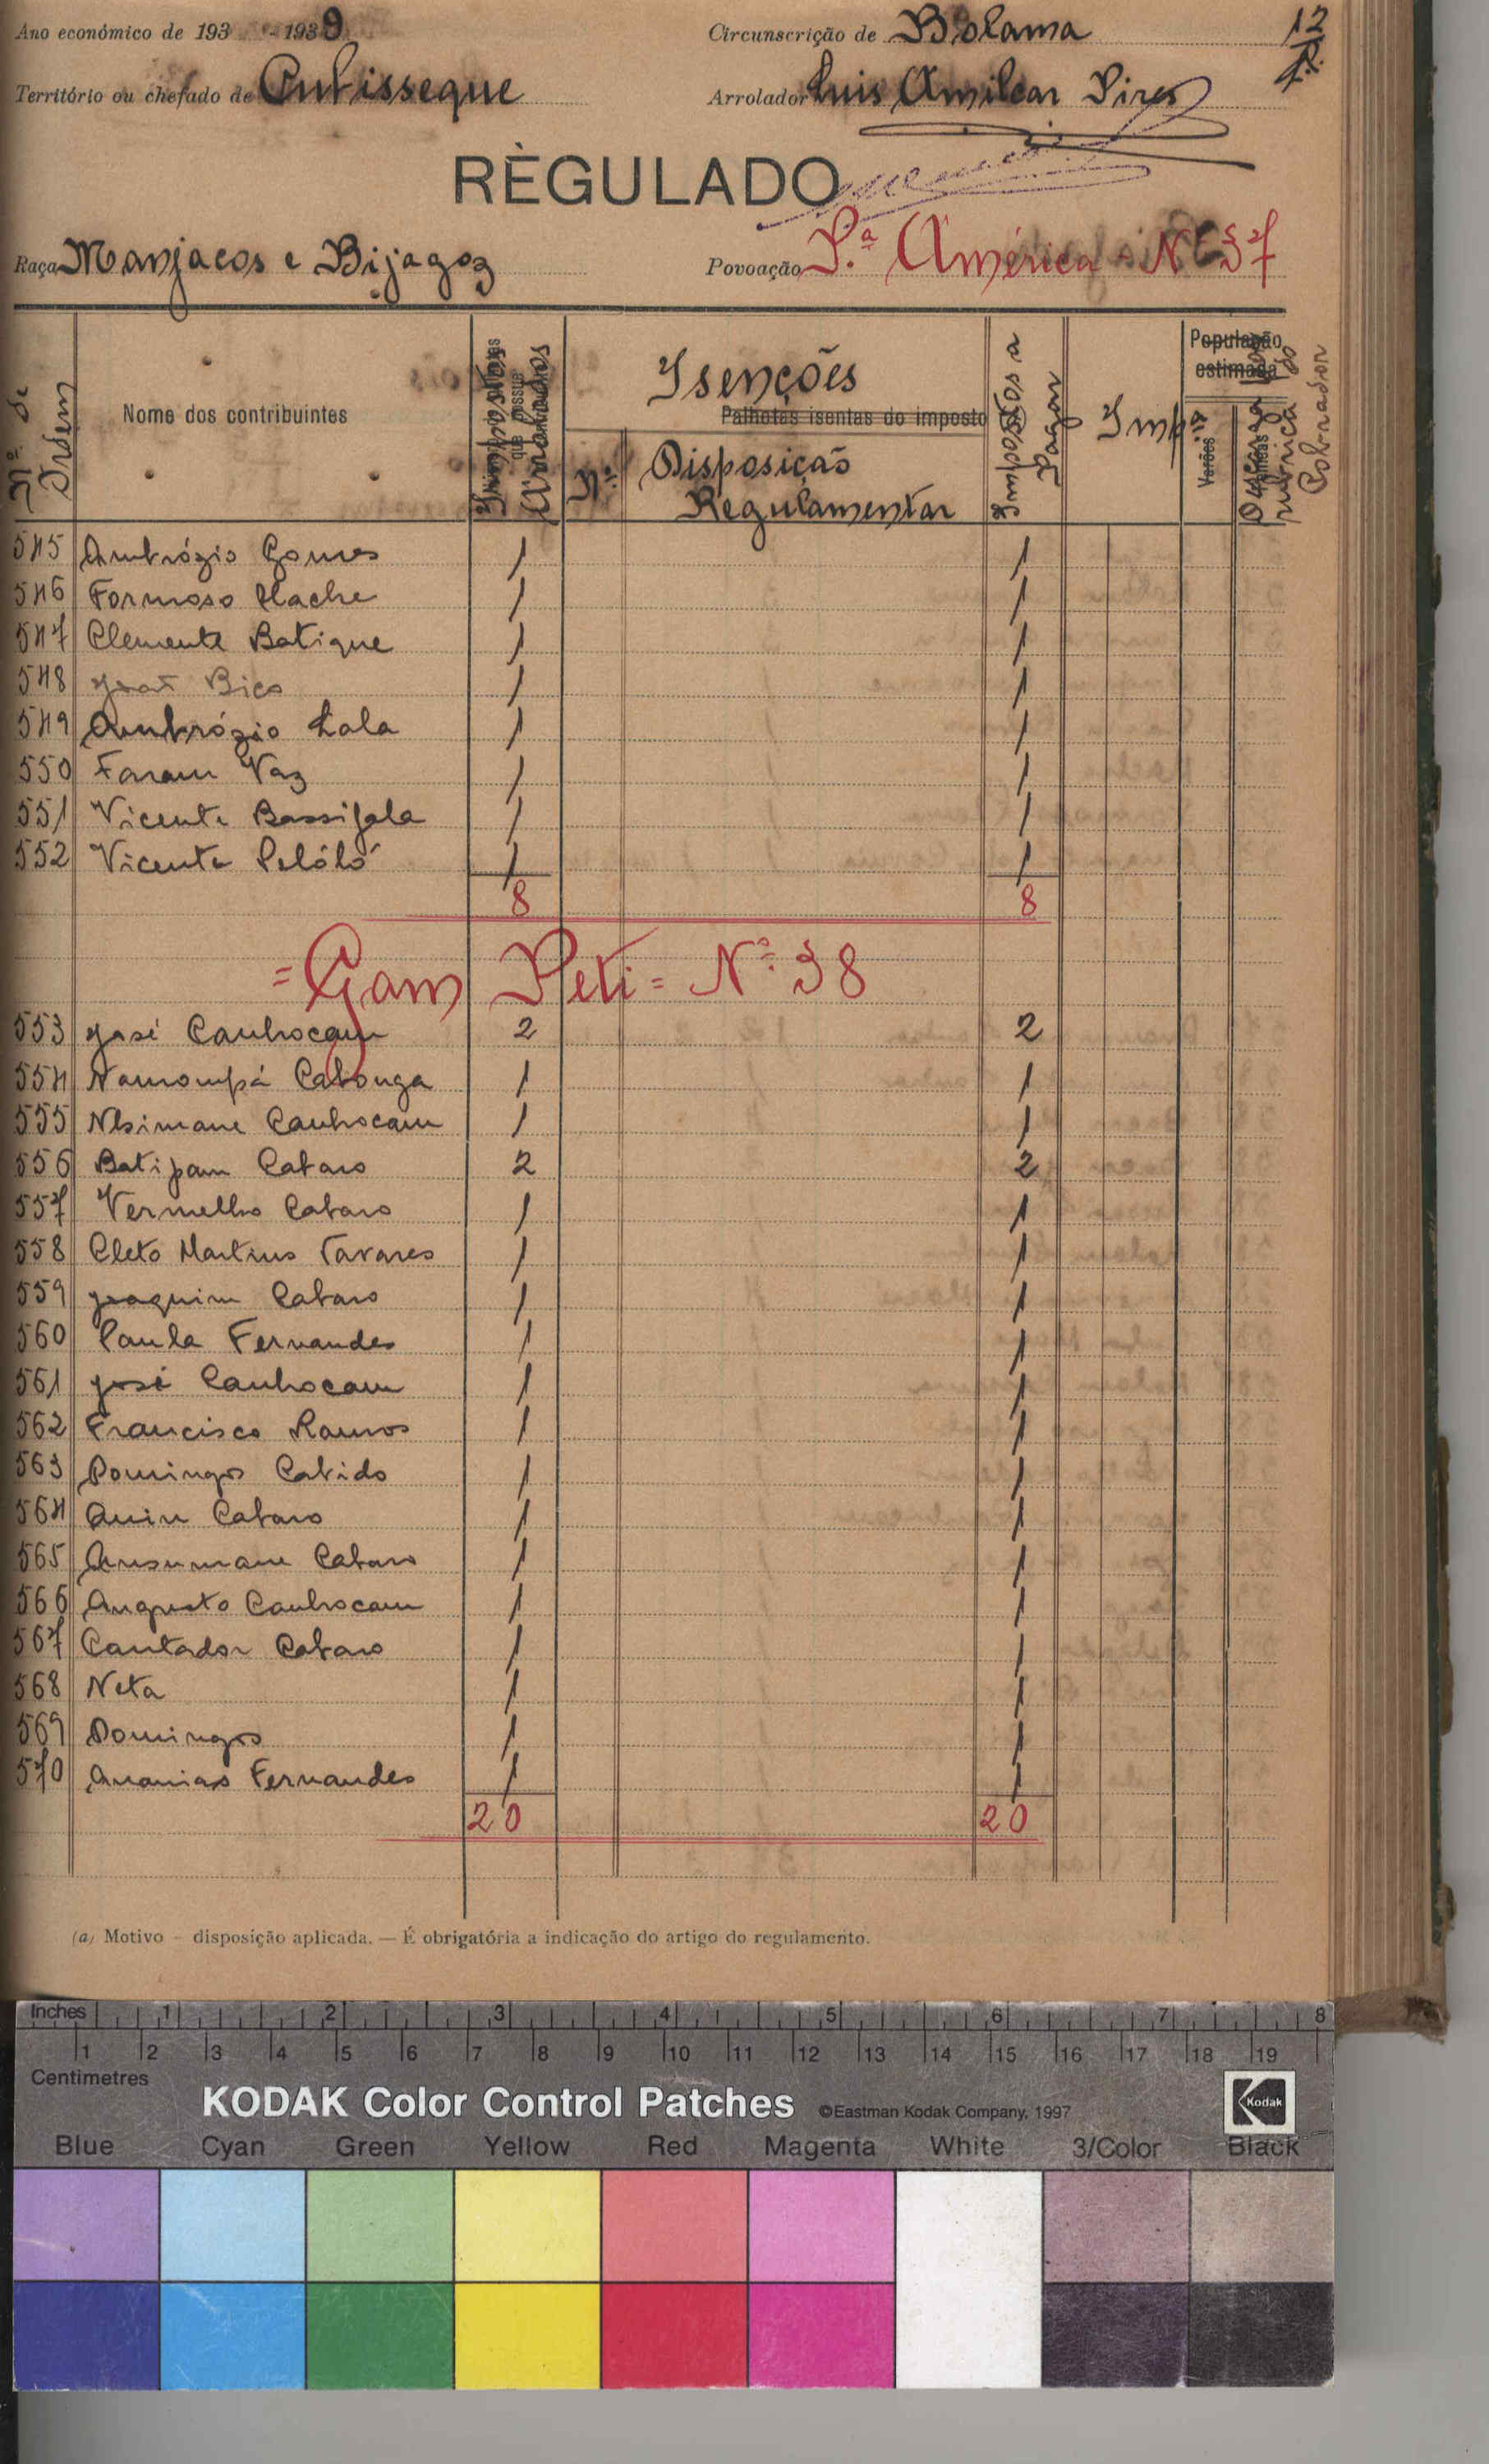 Ano económico de 193 - 1939
Circunscrição de Bolama
12
Território ou chefado de
Arrolador Luis Amilcar Pires
RÈGULADO
Raça Manjacos e Bijagoz
Povoação P.ª América Nº 37
Nº de Ordem
Nome dos contribuintes
Arrolados
Isenções
Palhotas isentas do imposto
Nº
Disposição Regulamentar
Impostos a Pagar
Imp
População estimada
Varões
rubrica do Cobrador
545 Ambrózio Gomes 1 1
546 Formoso Hache 1 1
547 Clemente Batique 1 1
548 João Bico 1 1
549 Ambrózio Lala 1 1
550 Faram Vaz 1 1
551 Vicente Bassifala 1 1
552 Vicente Pelóló 1 1
8 8
= Gam Peti = Nº 38
553 José Canhocam 2 2
554 Namompá Cabonga 1 1
555 Canhocam 1 1
556 Batipam Cataro 2 2
557 Vermelho Cataro 1 1
558 Cleto Martins Tavares 1 1
559 Joaquim Cataro 1 1
560 Paula Fernandes 1 1
561 José Canhocam 1 1
562 Francisco Ramos 1 1
563 Domingos Cabido 1 1
564 Quin Cataro 1 1
565 Ansumane Cataro 1 1
566 Augusto Canhocam 1 1
567 Cantador Cataro 1 1
568 Neta 1 1
569 Domingos 1 1
570 Ananias Fernandes 1 1
20 20
(a) Motivo – disposição aplicada. — É obrigatória a indicação do artigo do regulamento.
Inches 1 2 3 4 5 6 7 8
1 2 3 4 5 6 7 8 9 10 11 12 13 14 15 16 17 18 19
Centimetres
KODAK Color Control Patches ©Eastman Kodak Company, 1997 Kodak
Blue Cyan Green Yellow Red Magenta White 3/Color Black